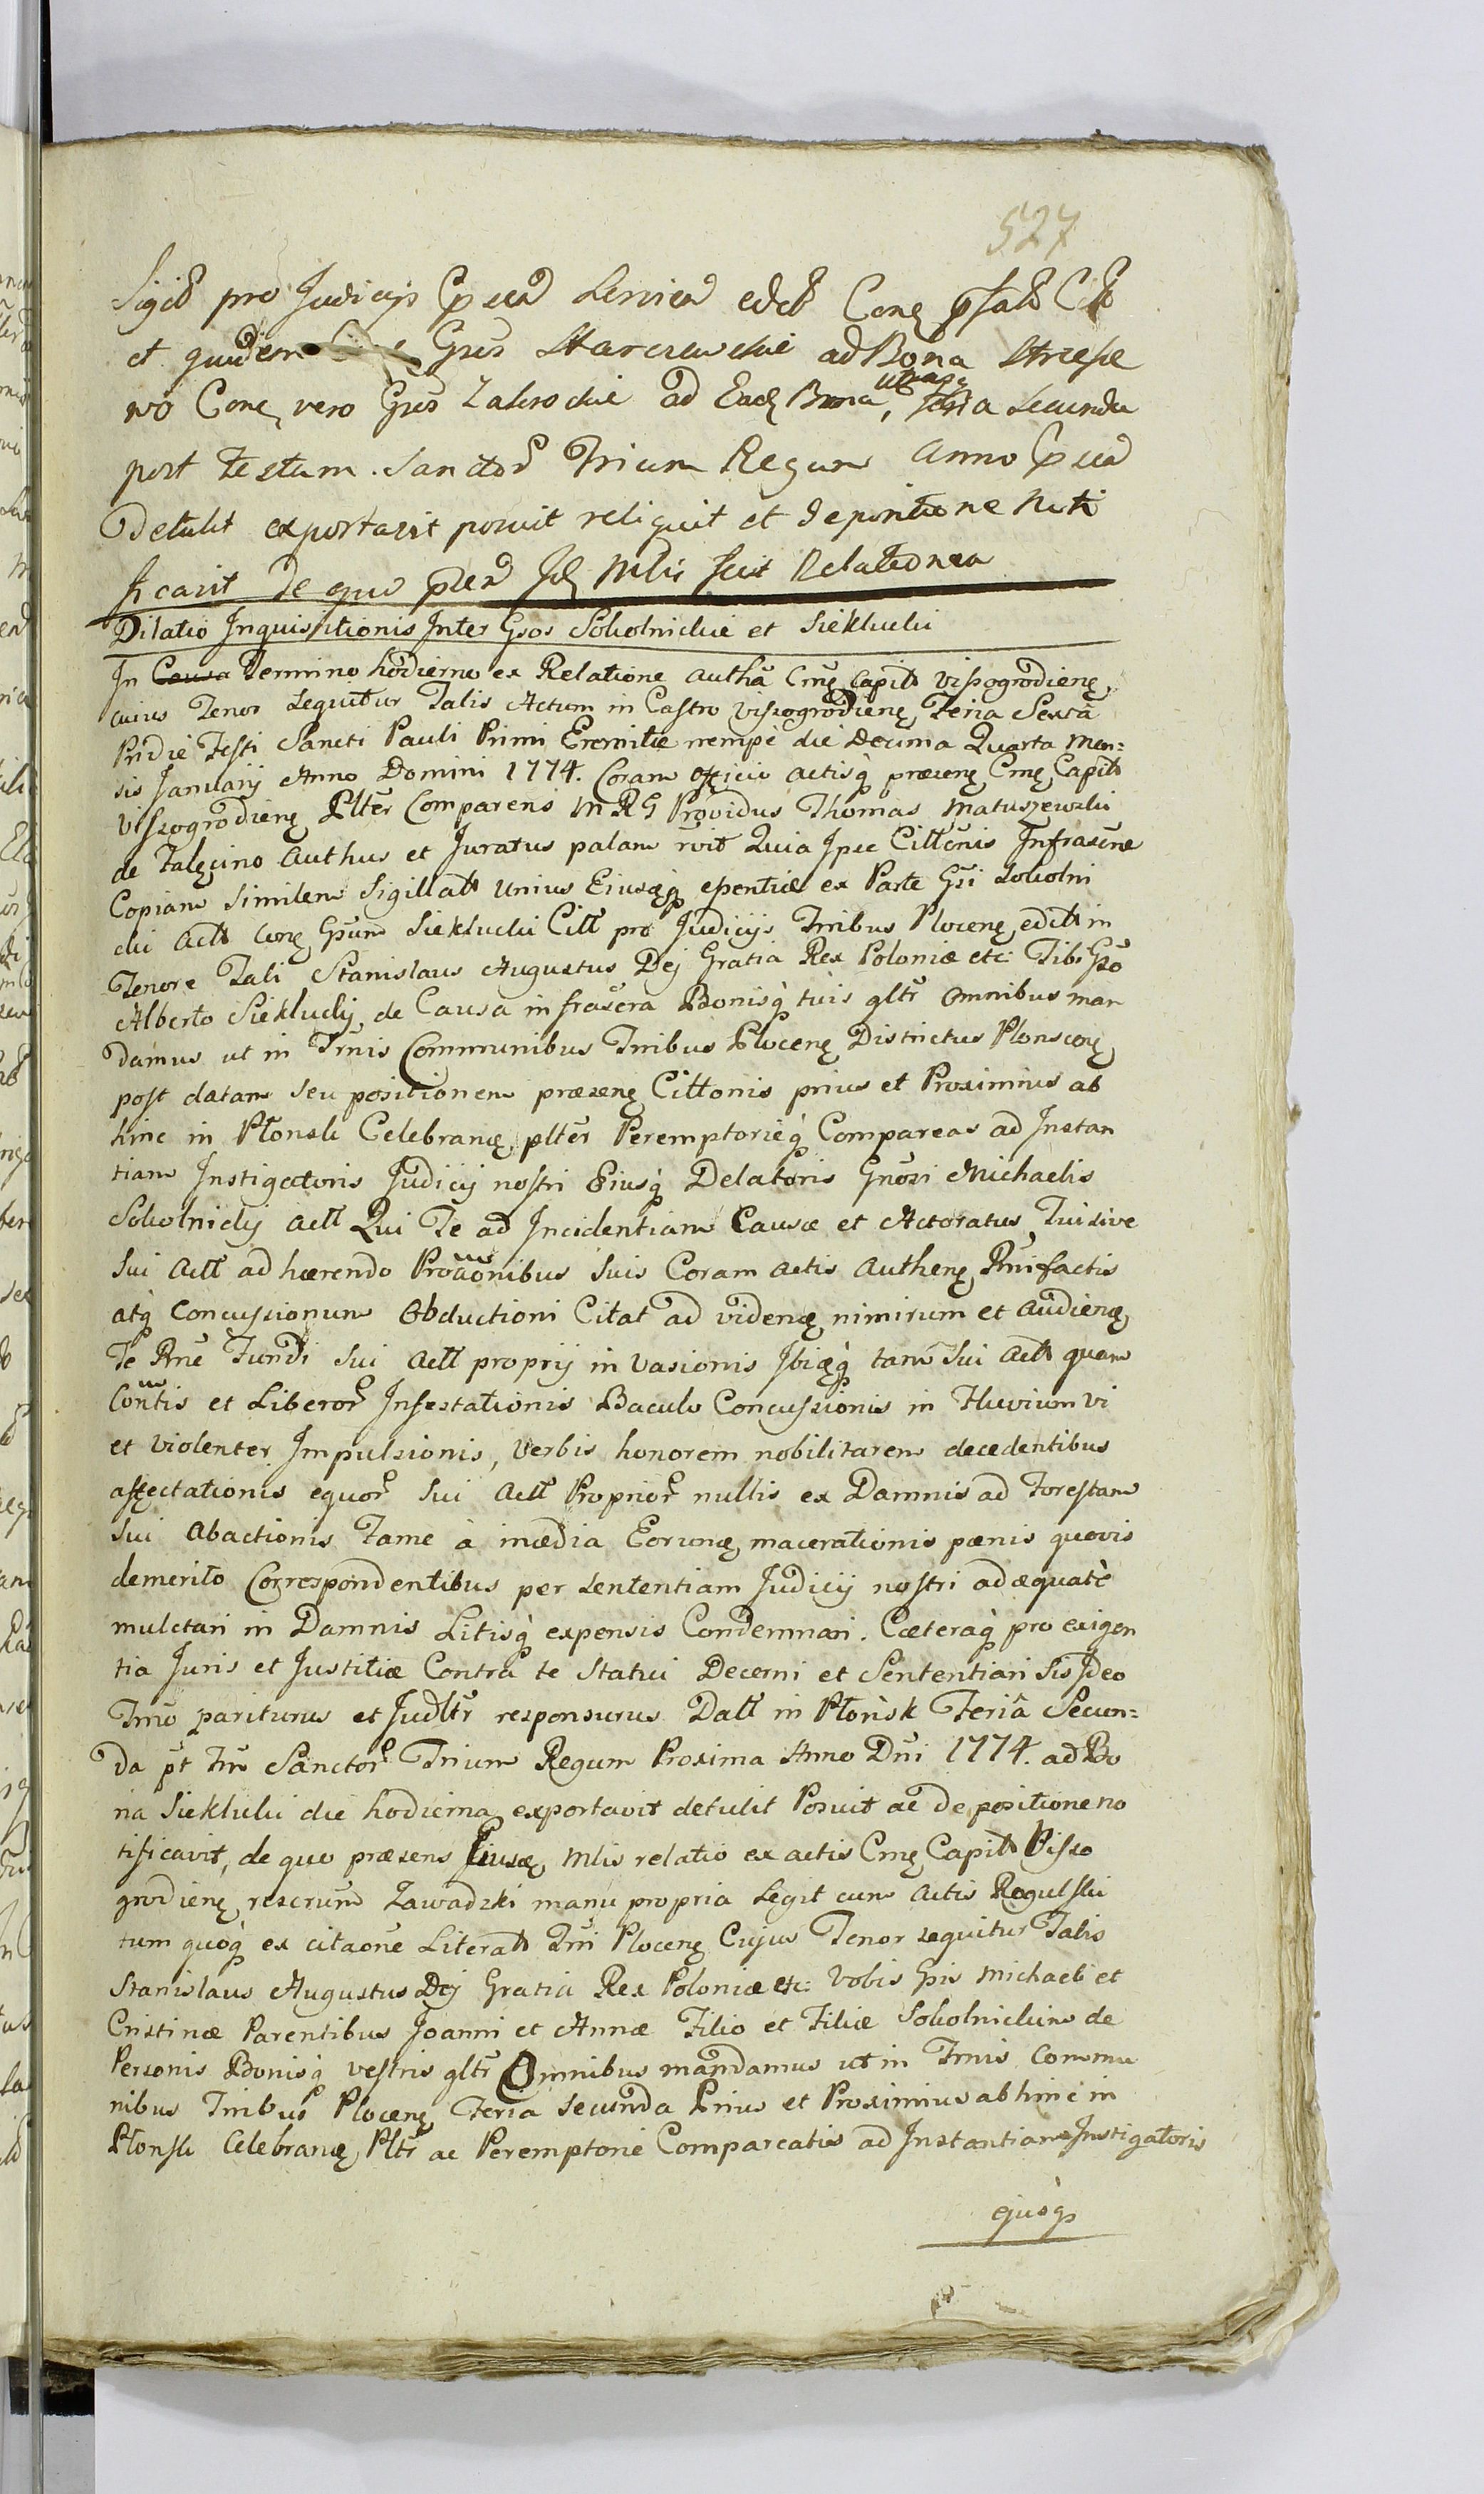 527
Sigilt pro Judicijs
et quidem Gsus Starczewskie ad Bona Strzesze
wo Conę vero Gsus Zakrockie ad Eadę Bona, utrasq Feria Secunda
post Festum Sanctor Trium Regum Anno
Detulit exportavit posuit reliquit et de positione Noti
ficavit de quo Mlis fecit Relationem
Dilatio Inquisitionis Inter Gsos Sokolnickie et Siekluckie
In Causa Termino hodierno ex Relatione authã Cmę Capit Viszogrodienę,
cuius Tenor Sequitur Talis Actum in Castro Viszogrodienę Feria Sexta
Pridie Festi Sancti Pauli Primi Eremitæ nempe die Decima Quarta Men:
sis Januarij Anno Domini 1774. Coram officio actisq præsenę Cmę Capit
Viszogrodienę Plter Comparens MRG Providus Thomas Matuszewski
de Zalęcino Authus et Juratus palam rvit Quia Ipse Cittonis Infrascine
Copiam Similem Sigillatt Unius Eiusdęq epentiæ ex Parte Gsi Sokolni
cki Actt Conę Gsum Sieklucki Citt pro Judicijs Tribus Plocenę editt in
Tenore Tali Stanislaus Augustus Dej Gratia Rex Poloniæ etc: Tibi Gso
Alberto Sieklucky, de Causa infrascra Bonisq tuis gltr Omnibus man
damus ut in Trnis Communibus Trribus Plocenę Districtus Plonscenę
post datam seu positionem præsenę Cittonis prius et Proximius ab
hinc in Płonsk Celebranę, plter Peremptorieq Compareas ad Instan
tiam Instigatoris Judicij nostri Eiusq Delatoris Gnosi Michaelis
Sokolnicky Actt Qui Te ad Incidentiam Causæ et Actoratus Tui sive
Sui Actt ad hærendo Proaonibus Suis Coram Actis Authenę Rni factis
atq Concussionum Obductioni Citat ad videnę nimirum et audienę
Te Rne Fundi Sui Actt proprij in vasionis Ibidęq tam Sui Actt quam
Contis et Liberor Infestationis Baculo Concussionis in Fluvium vi
et violenter Impulsionis, Verbis honorem nobilitarem decedentibus
affectationis equor Sui Actt Proprior nullis ex Damnis ad Forestam
Sui Abactionis Fame à inædia Eorundę macerationis pænis quovis
demerito Correspondentibus per Sententiam Judicij nostri adæquatè
mulctari in Damnis Litisq expensis Condemnari. Cæteraq pro exigen
tia Juris et Justitiæ Contra te Statui Decerni et Sententiari Sis Ideo
Trno pariturus et Judltr responsurus Datt in Płońsk Feriâ Secun:
da pt Fm Sanctor Trium Regum Proxima Anno Dni 1774. ad Bo
na Sieklucki die hodierna exportavit detulit Posuit ac de positione no
tificavit, de quo præsens Eiusdę Mlis relatio ex actis Cmę Capitt Viszo
grodienę, rescrum Zawadzki manu propria Legit cum Actis Rogulski
tum quoq ex citaone Literatt Trri Plocenę Cujus Tenor sequitur Talis
Stanislaus Augustus Dej Gratia Rex Poloniæ etc: Vobis Gsis Michaeli et
Cristinæ Parentibus Joanni et Annæ Filio et Filiæ Sokolnickim de
Personis Bonisq vestris gltr Omnibus mandamus ut in Trnis Commu
nibus Trribus Plocenę Feria Secunda Prius et Proximius abhinc in
Płonsk Celebranę, Pltr ac Peremptorie Compareatis ad Instantiam Instigatoris
ejusq